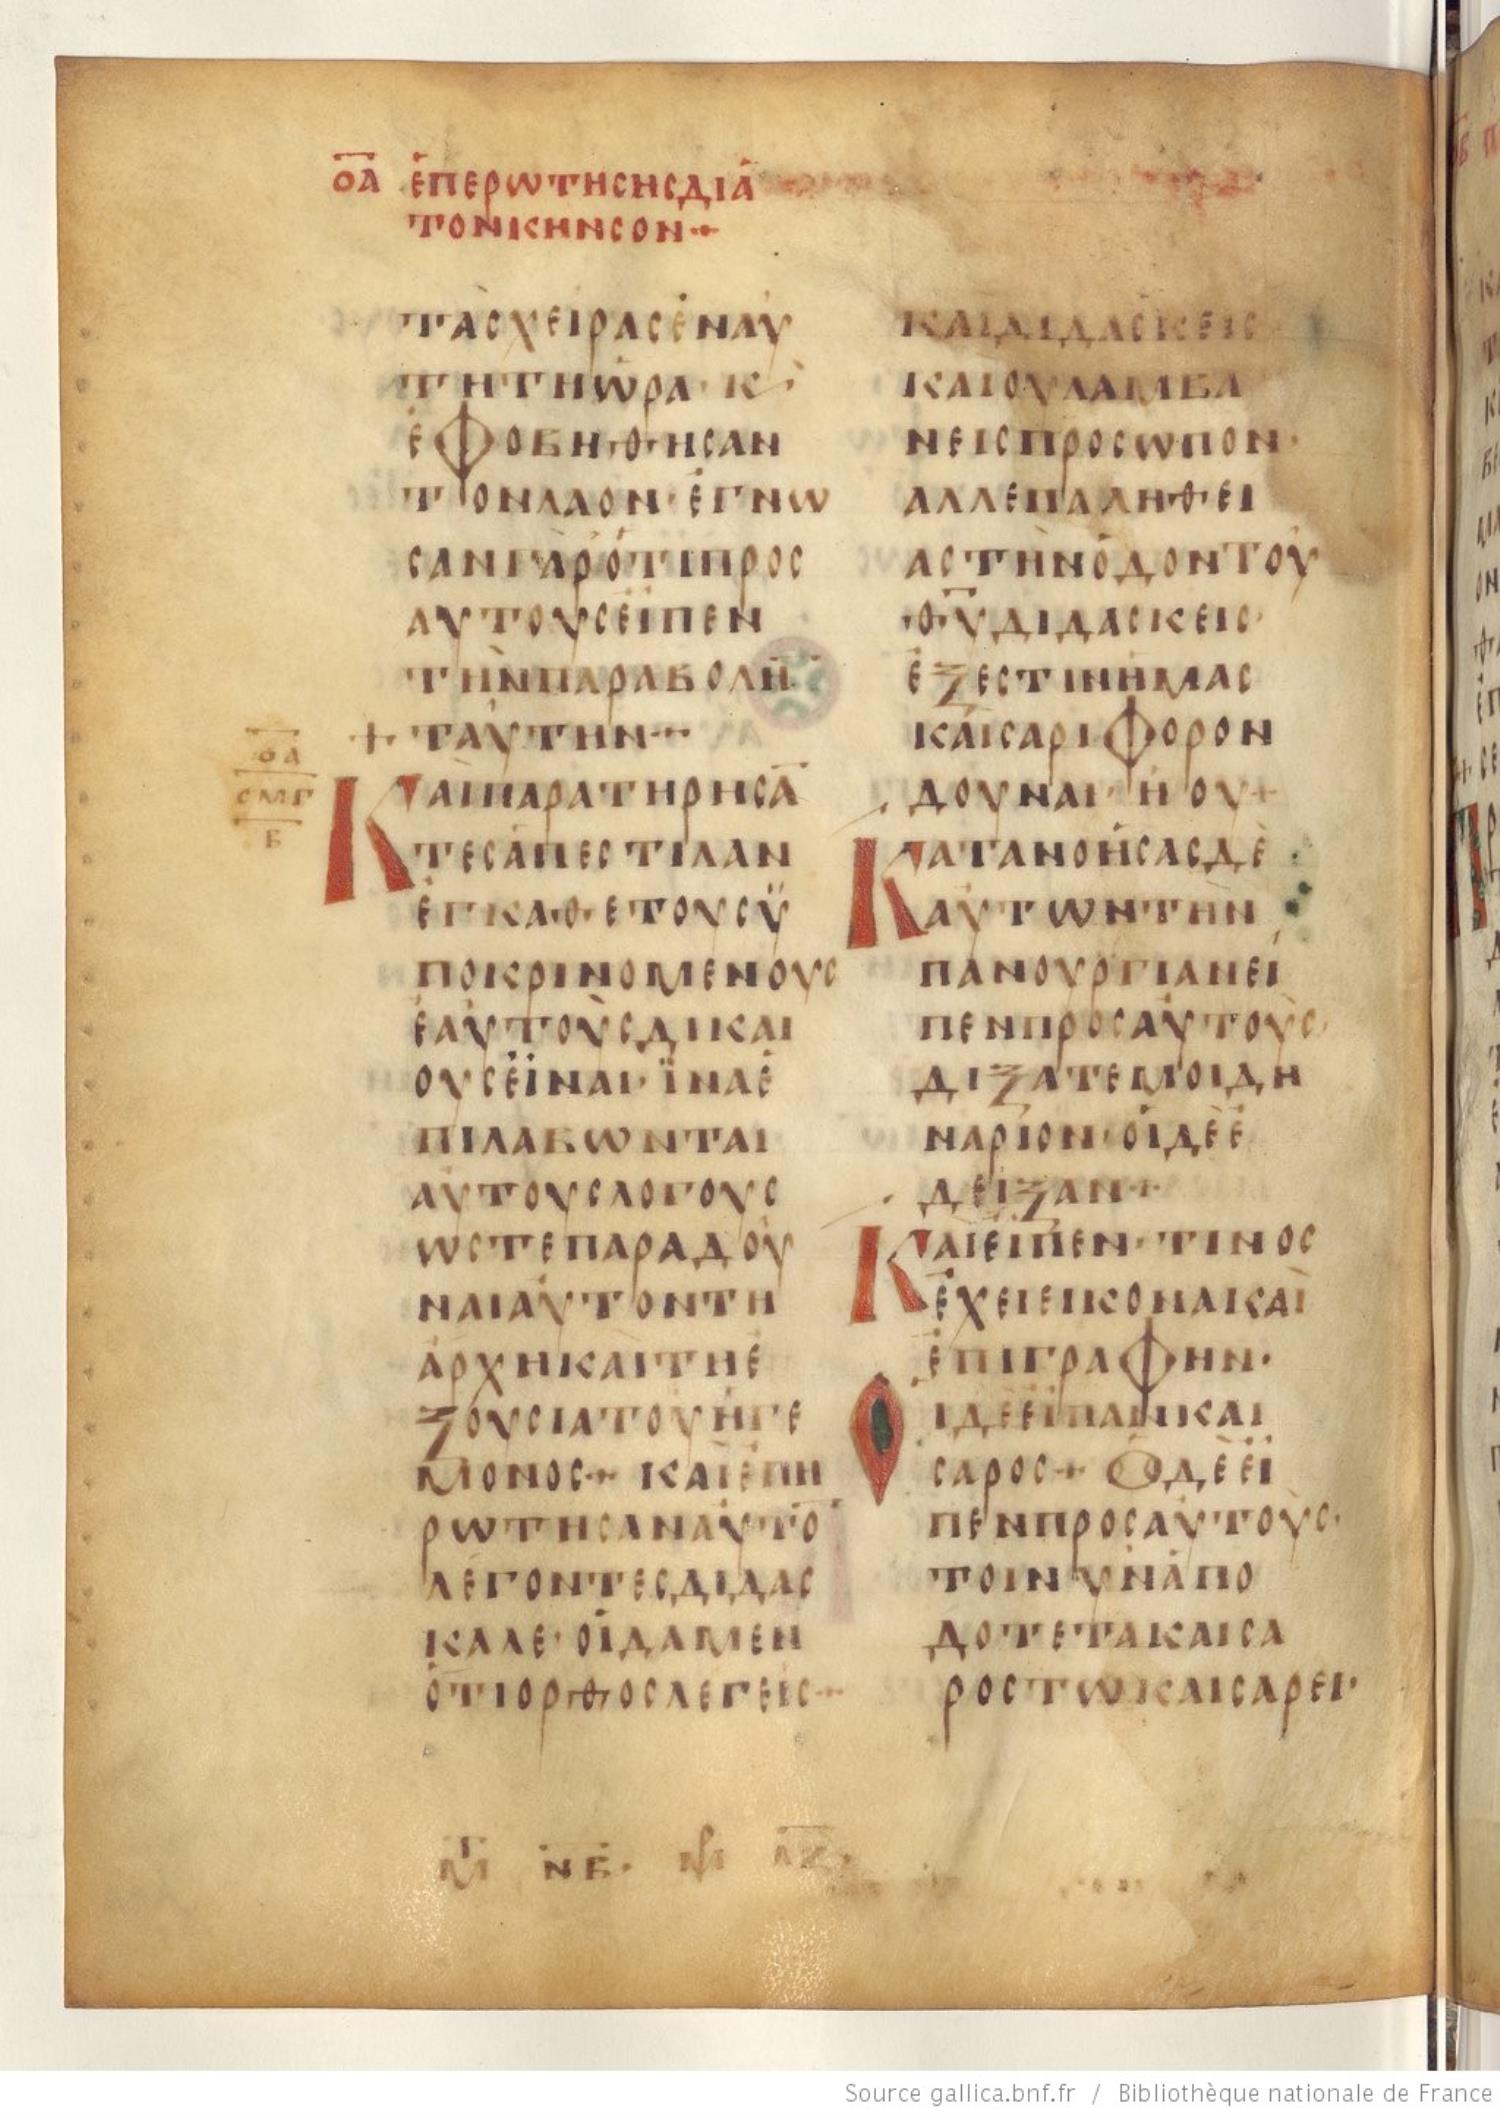 ΟΑ ἘΠΕΡΩΤΗϹΗϹΔΙΑ
ΤΟΝΚΗΝϹΟΝ
ΤΑϹΧΕΙΡΑϹΕΝΑΥ
ΤΗΤΗΩΡΑ· Κ
ΕΦΟΒΗΘΗϹΑΝ
ΤΟΝΛΑΟΝ· ΕΓΝΩ
ϹΑΝΓΑΡΟΤΙΠΡΟϹ
ΑΥΤΟΥϹΕΙΠΕΝ
ΤΗΝΠΑΡΑΒΟΛΗ̄
+ ΤΑΥΤΗΝ
ΟΑ
ϹΜΓ
Β
ΚΑΙΠΑΡΑΤΗΡΗϹᾹ
ΤΕϹΑΠΕϹΤΙΛΑΝ
ΕΓΚΑΘΕΤΟΥϹΫ
ΠΟΚΡΙΝΟΜΕΝΟΥϹ
ΕΑΥΤΟΥϹΔΙΚΑΙ
ΟΥϹΕΙΝΑΙ· ΪΝΑΕ
ΠΙΛΑΒΩΝΤΑΙ
ΑΥΤΟΥϹΛΟΓΟΥϹ
ΩϹΤΕΠΑΡΑΔΟΥ
ΝΑΙΑΥΤΟΝΤΗ
ΑΡΧΗΚΑΙΤΗΕ
ΞΟΥϹΙΑΤΟΥΗΓΕ
ΜΟΝΟϹ+ ΚΑΙΕΠΗ
ΡΩΤΗϹΑΝΑΥΤΟ̄
ΛΕΓΟΝΤΕϹΔΙΔΑϹ
ΚΑΛΕ· ΟΙΔΑΜΕΝ
ΟΤΙΟΡΘΟϹΛΕΓΕΙϹ
ΚΑΙΔΙΔΑϹΚΕΙϹ
ΚΑΙΟΥΛΑΜΒΑ
ΝΕΙϹΠΡΟϹΩΠΟΝ·
ΑΛΛΕΠΑΛΗΘΕΙ
ΑϹΤΗΝΟΔΟΝΤΟΥ
Θ̄Ῡ ΔΙΔΑϹΚΕΙϹ·
ΕΞΕϹΤΙΝΗΜΑϹ
ΚΑΙϹΑΡΙΦΟΡΟΝ
ΔΟΥΝΑΙ· Η ΟΥ+
ΚΑΤΑΝΟΗϹΑϹΔΕ
ΑΥΤΩΝΤΗΝ
ΠΑΝΟΥΡΓΙΑΝΕΙ
ΠΕΝΠΡΟϹΑΥΤΟΥϹ·
ΔΙΞΑΤΕΜΟΙΔΗ
ΝΑΡΙΟΝ· ΟΙΔΕΕ
ΔΕΙΞΑΝ+
ΚΑΙΕΙΠΕΝ· ΤΙΝΟϹ
ΕΧΕΙΕΙΚΟΝΑΙΚΑΙ
ΕΠΙΓΡΑΦΗΝ·
ΟΙΔΕΕΙΠΑΝΚΑΙ
ϹΑΡΟϹ+ ΟΔΕΕΙ
ΠΕΝΠΡΟϹΑΥΤΟΥϹ·
ΤΟΙΝΥΝΑΠΟ
ΔΟΤΕΤΑΚΑΙϹΑ
ΡΟϹΤΩΚΑΙϹΑΡΕΙ·
ΝΒ·
Source gallica.bnf.fr / Bibliothèque nationale de France